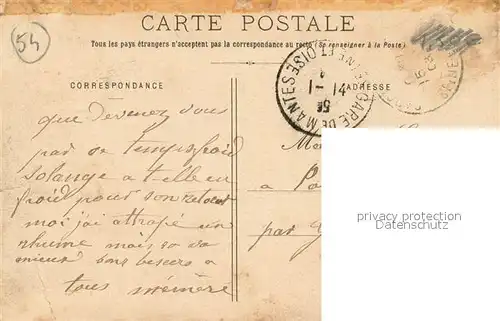 54
CARTE POSTALE
Tous les pays étrangers n'acceptent pas la correspondance au recto (Se renseigner à la Poste)
CORRESPONDANCE
ADRESSE
GARE DE MANTES SEINE ET OISE
1-14
que devenez vous
par se temps froid
Solange a t elle eu
froid pour son retour
moi j'ai attrapé un
rhume mais sa va
mieux bons baisers a
tous mémère
a
par
privacy protection
Datenschutz